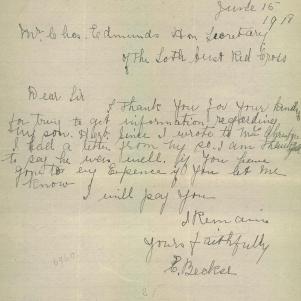 June 15
1918
Mr Chas. Edmunds Hon Secretary
of The Soth Aust Red Cross
Dear Sir
I Thank You for Your kindly
for trying to get information regarding
my son. Since I wrote to Mrs
I had a letter from my so. I am thankful
to say he was well. if you have
gone to eny Expence if you let me
know
I will pay you
I Remain
yours faithfully
E. Becker